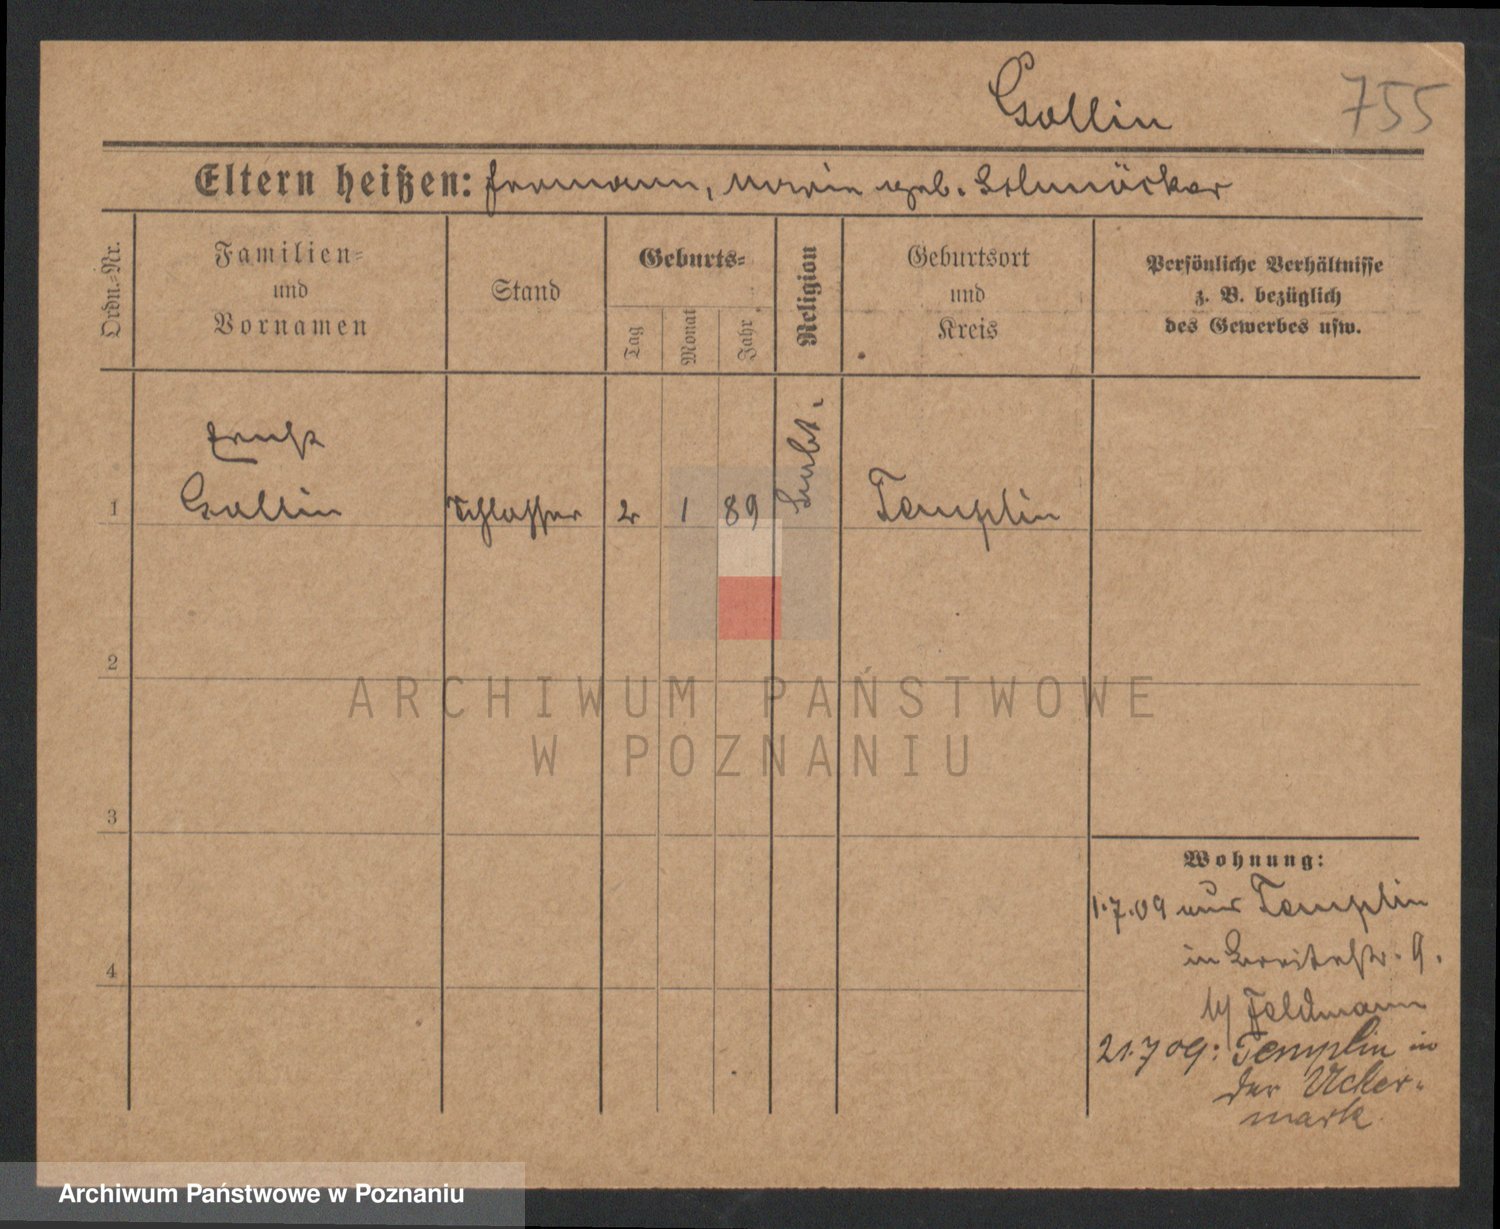 Gollin 755
Eltern heißen: Hermann, Marie geb. Schmöcker
Ordn.-Nr.
Familien-
und
Vornamen
Stand
Geburts-
Tag
Monat
Jahr
Religion
Geburtsort
und
Kreis
Persönliche Verhältnisse
z. B. bezüglich
des Gewerbes usw.
Ernst
1 Gollin Schlosser 2 1 89 Templin
2
3
4
Wohnung:
1.7.09 aus Templin
in Breitestr. 9.
b/ Feldmann
21.7 09: Templin in
der Ucker-
mark.
ARCHIWUM PAŃSTWOWE
W POZNANIU
Archiwum Państwowe w Poznaniu